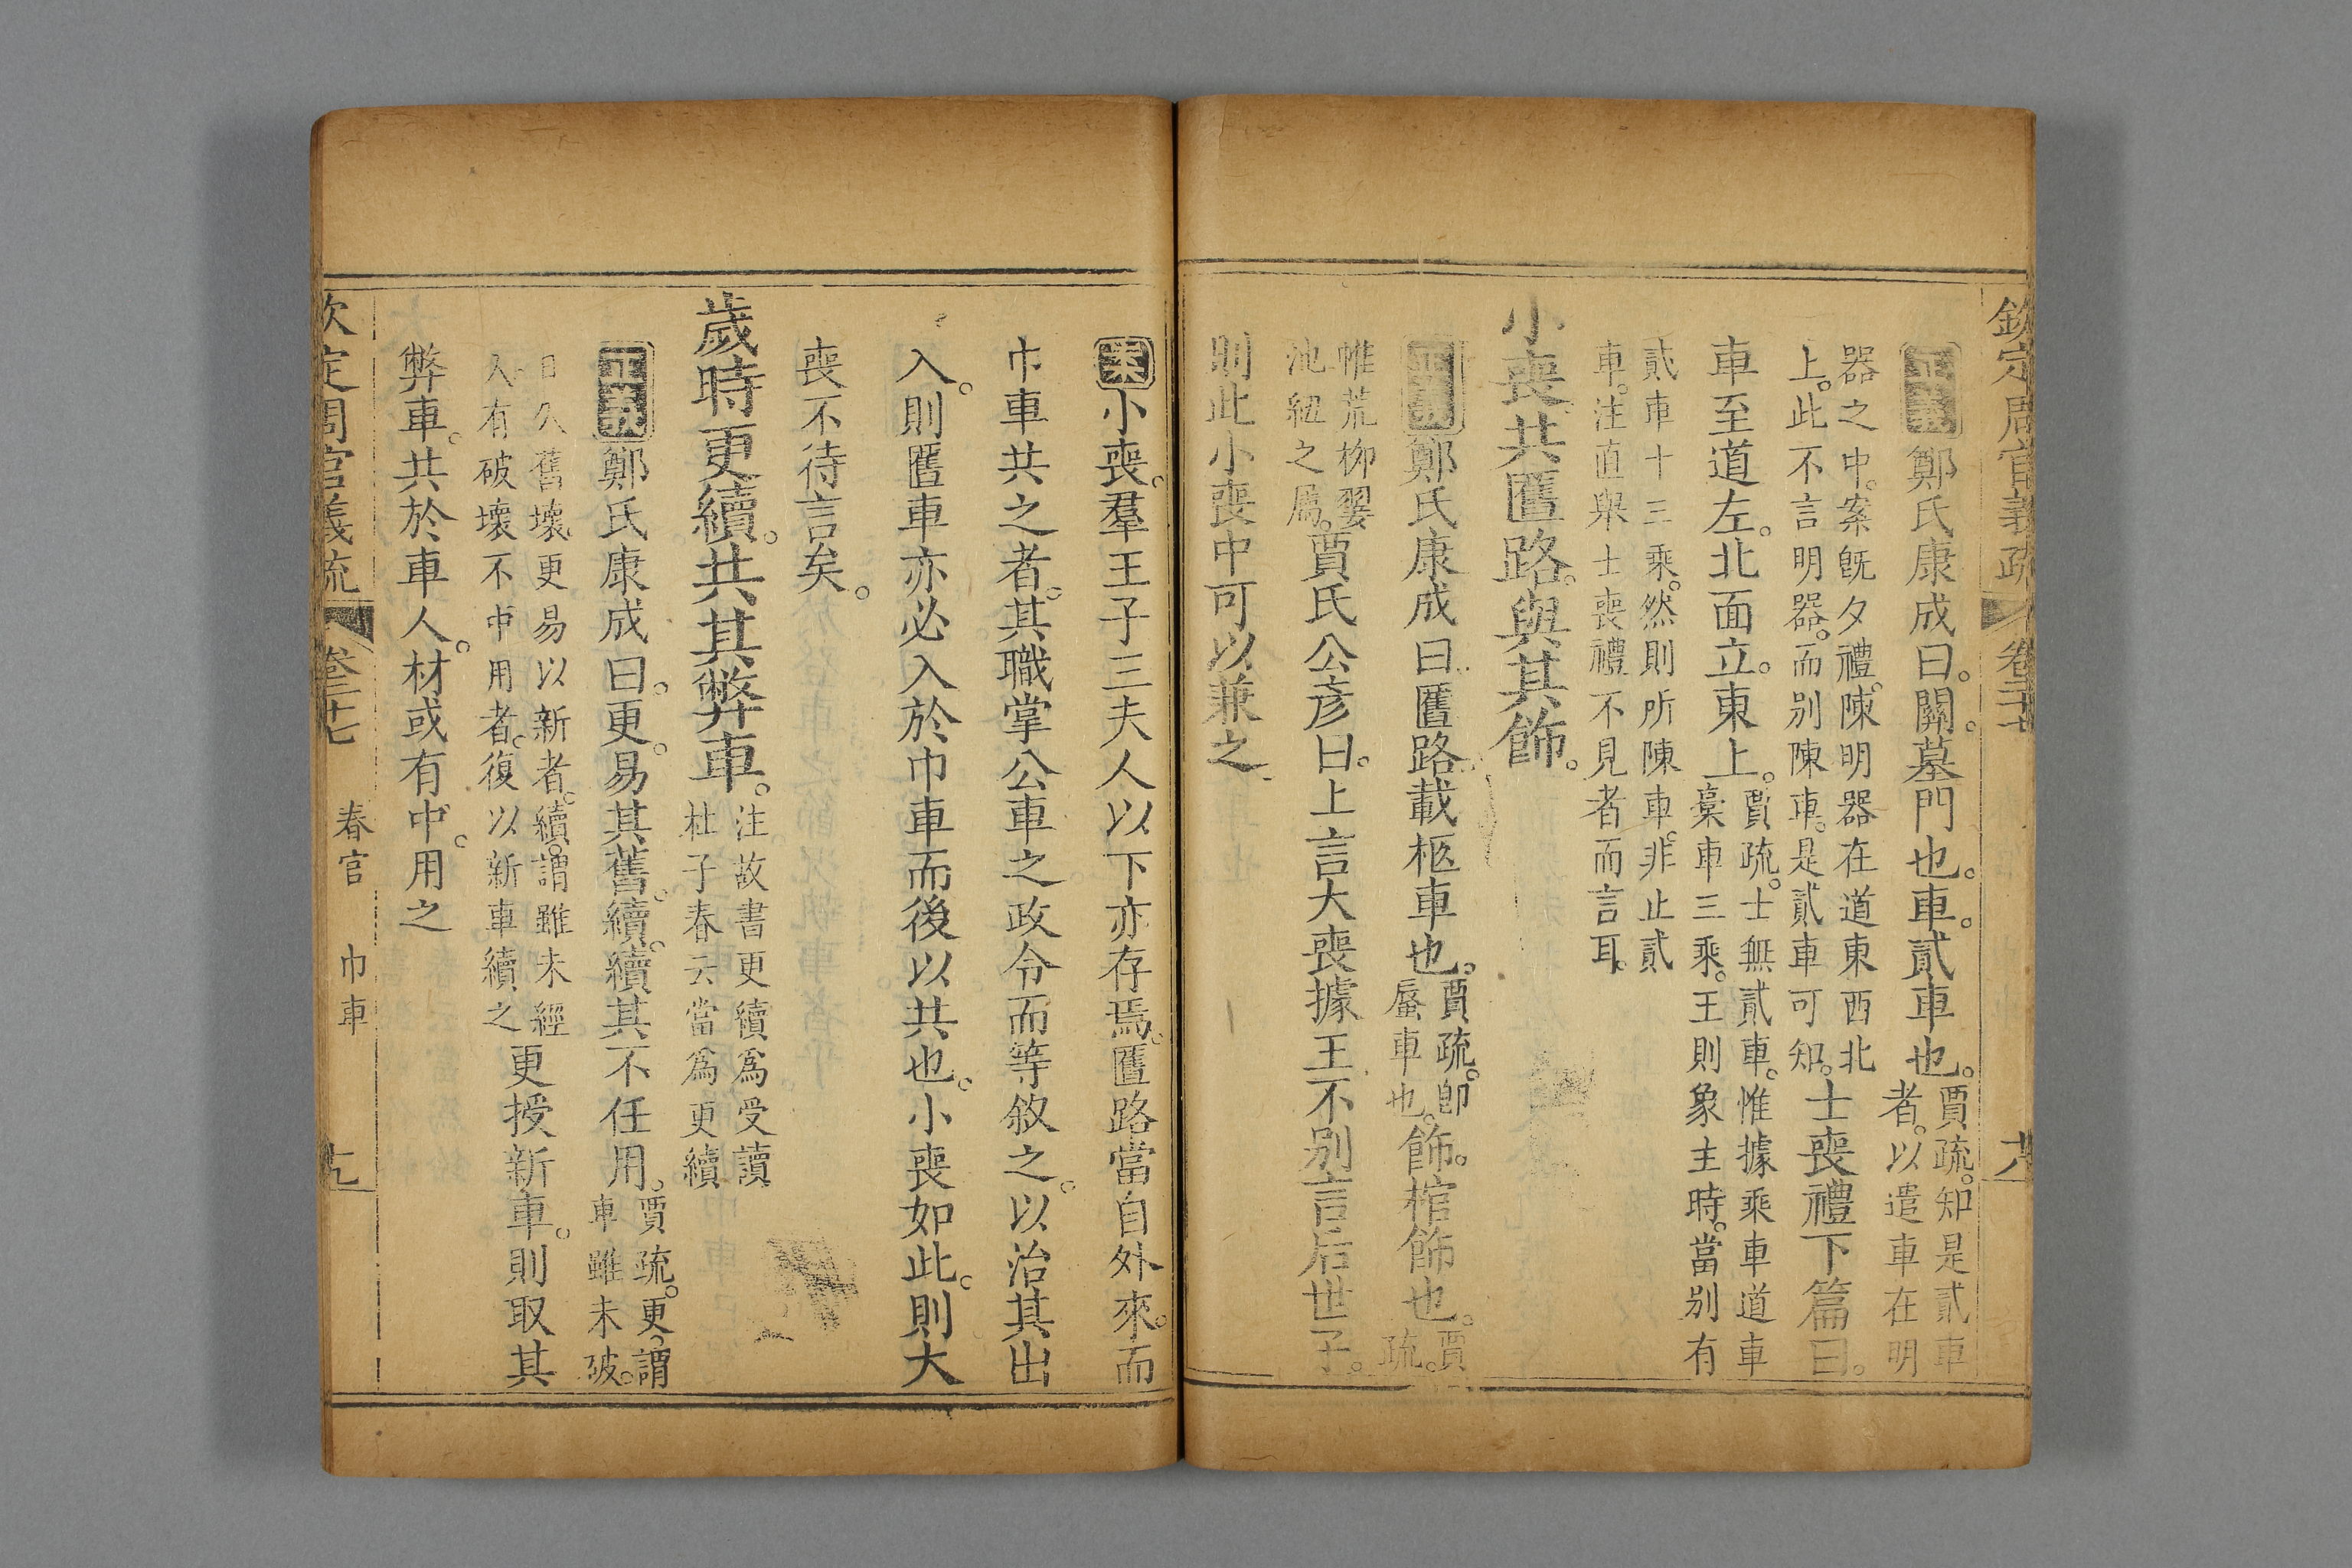 欽定周官義疏 卷二十七 十八
正義鄭氏康成曰。關。墓門也。車。貳車也。賈疏。知是貳車者。以遣車在明
器之中。案旣夕禮。陳明器在道東西北上。此不言明器。而別陳車。是貳車可知。士喪禮下篇曰。
車至道左。北面立。東上。賈疏。士無貳車。惟據乘車道車槀車三乘。王則象主時。當別有
貳車十三乘。然則所陳車。非止貳車。注直舉士喪禮不見者而言耳。
小喪。共匶路。與其飾。
正義鄭氏康成曰。匶路。載柩車也。賈疏。卽蜃車也。飾。棺飾也。賈疏。
帷荒柳翣池紐之屬。賈氏公彥曰。上言大喪據王不別言后世子。
則此小喪中可以兼之。
案小喪。羣王子三夫人以下亦存焉。匶路當自外來。而
巾車共之者。其職掌公車之政令而等敘之。以治其出
入。則匶車亦必入於巾車而後以共也。小喪如此。則大
喪不待言矣。
歲時更續。共其弊車。注。故書更續爲受讀杜子春云當爲更續
正義鄭氏康成曰。更。易其舊。續。續其不任用。賈疏。更。謂車雖未破。
日久舊壞。更易以新者。續。謂雖未經久。有破壞不中用者。復以新車續之更授新車。則取其
弊車。共於車人。材或有中。用之
欽定周官義疏 卷二十七 春官 巾車 十九